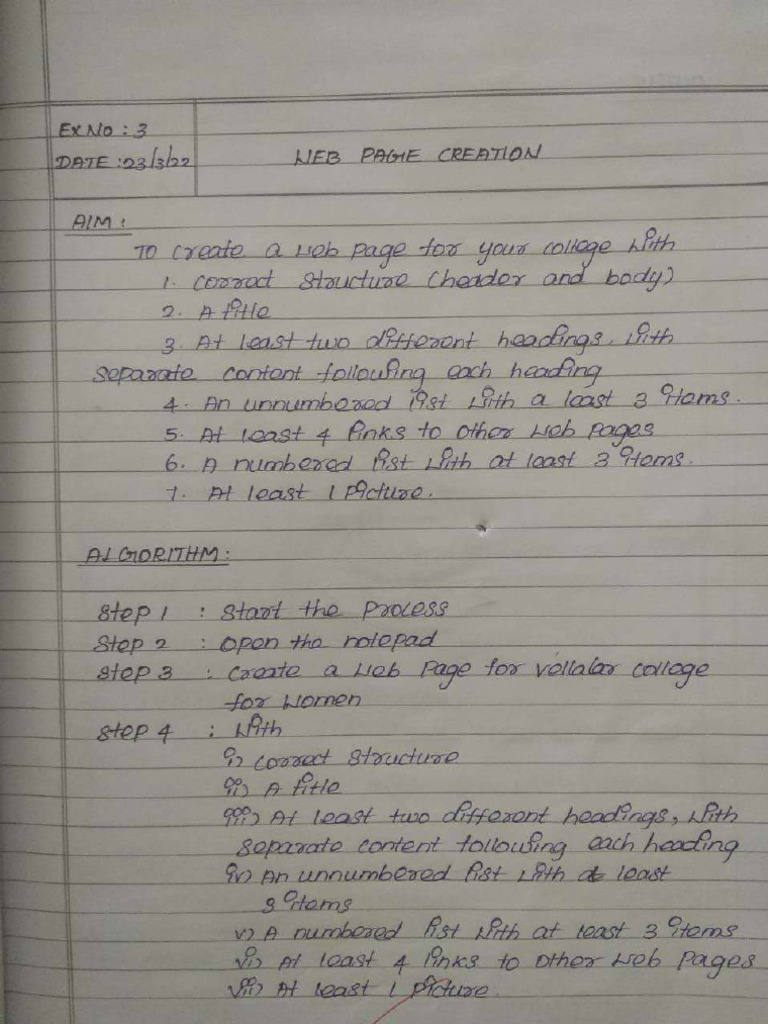 Ex No : 3
DATE : 23/3/22
WEB PAGE CREATION
AIM :
To create a web page for your college with
1. correct structure (header and body)
2. A title
3. At least two different headings, with
separate content following each heading
4. An unnumbered list with a least 3 items.
5. At least 4 links to other web pages
6. A numbered list with at least 3 items.
7. At least 1 picture.
ALGORITHM :
Step 1 : Start the process
Step 2 : open the notepad
Step 3 : create a web page for vellalar college
for women
Step 4 : with
i) correct structure
ii) A title
iii) At least two different headings, with
separate content following each heading
iv) An unnumbered list with at least
3 items
v) A numbered list with at least 3 items
vi) At least 4 links to other web pages
vii) At least 1 picture.